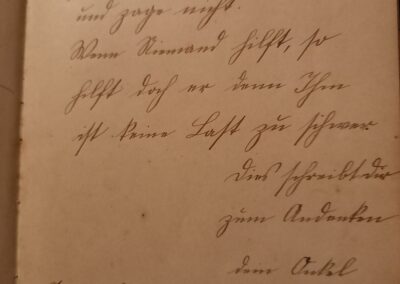 und zage nicht.
Wenn Niemand hilft, so
hilft doch er denn Ihm
ist keine Last zu schwer
Dies schreibt dir
zum Andenken
dein Onkel